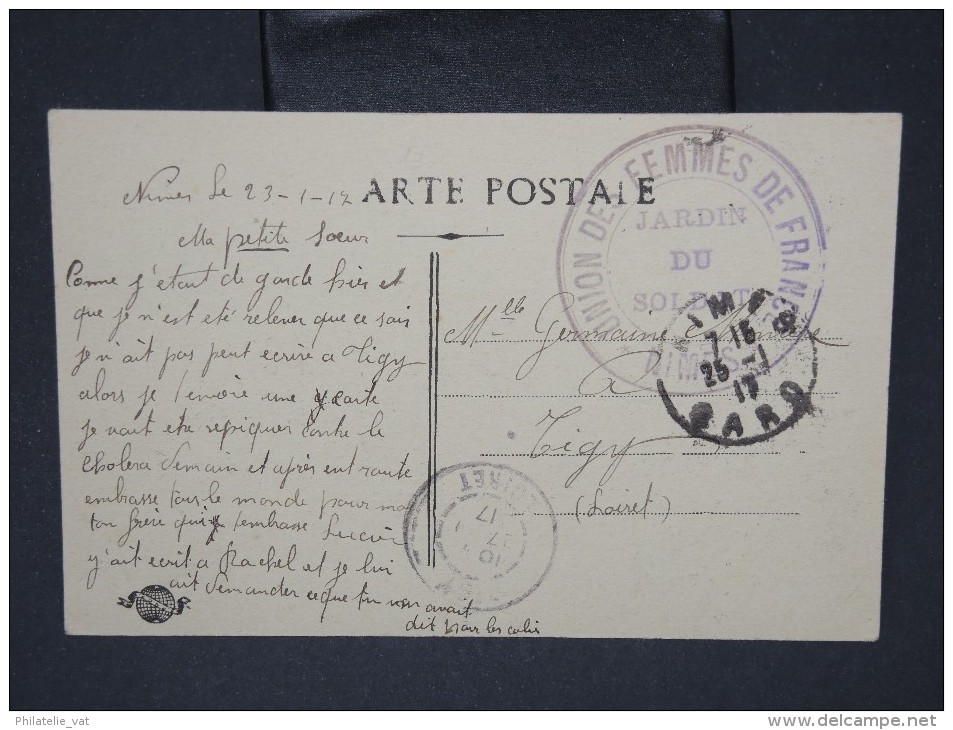 Nimes le 23-1-17
ARTE POSTALE
Ma petite Soeur
Conme j'étant de garde hier et
que je n'est eté relener que ce soir
je n'ait pas peut ecrire a Tigy
alors je t'envoie une carte
je vait etre repiquer contre le
cholera demain et après en route
embrasse tous le monde pour moi
ton frère qui t'embrasse Lucien
y'ait ecrit a Rachel et je lui
ait demander ce que tu m'en avait
dit pour les colis
UNION DES FEMMES DE FRANCE
JARDIN
DU
SOLDAT
NIMES
NIMES
7-15
25-1
17
GARD
Mlle Germaine
A
Tigy
(Loiret)
LOIRET
17
Philatelie_vat
www.delcampe.net